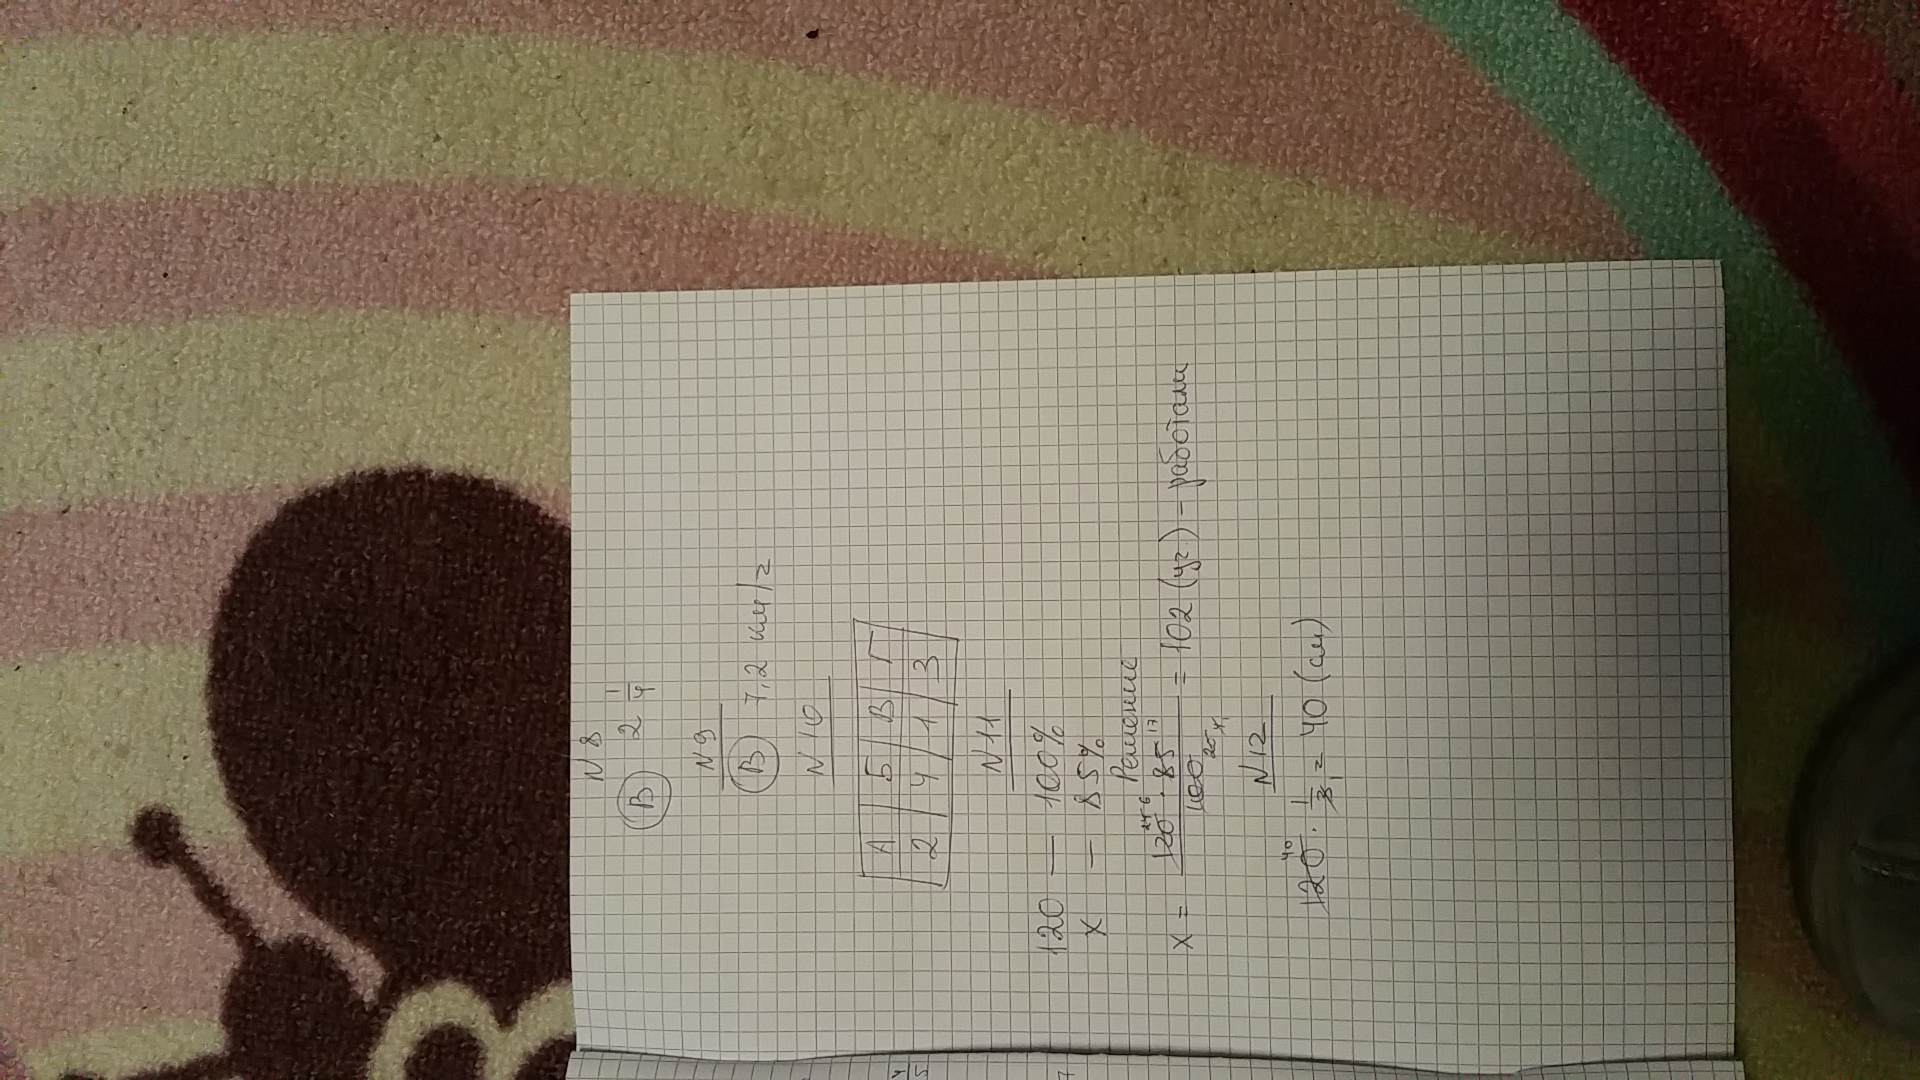 N 8
В 2 1/4
N 9
В 7,2 км/г
N 10
А | Б | В | Г
2 | 4 | 1 | 3
N 11
120 — 100%
х — 85%
Решение
х = 120 · 85 / 100 = 102 (уч.) - работали
N 12
120 · 1/3 = 40 (см)